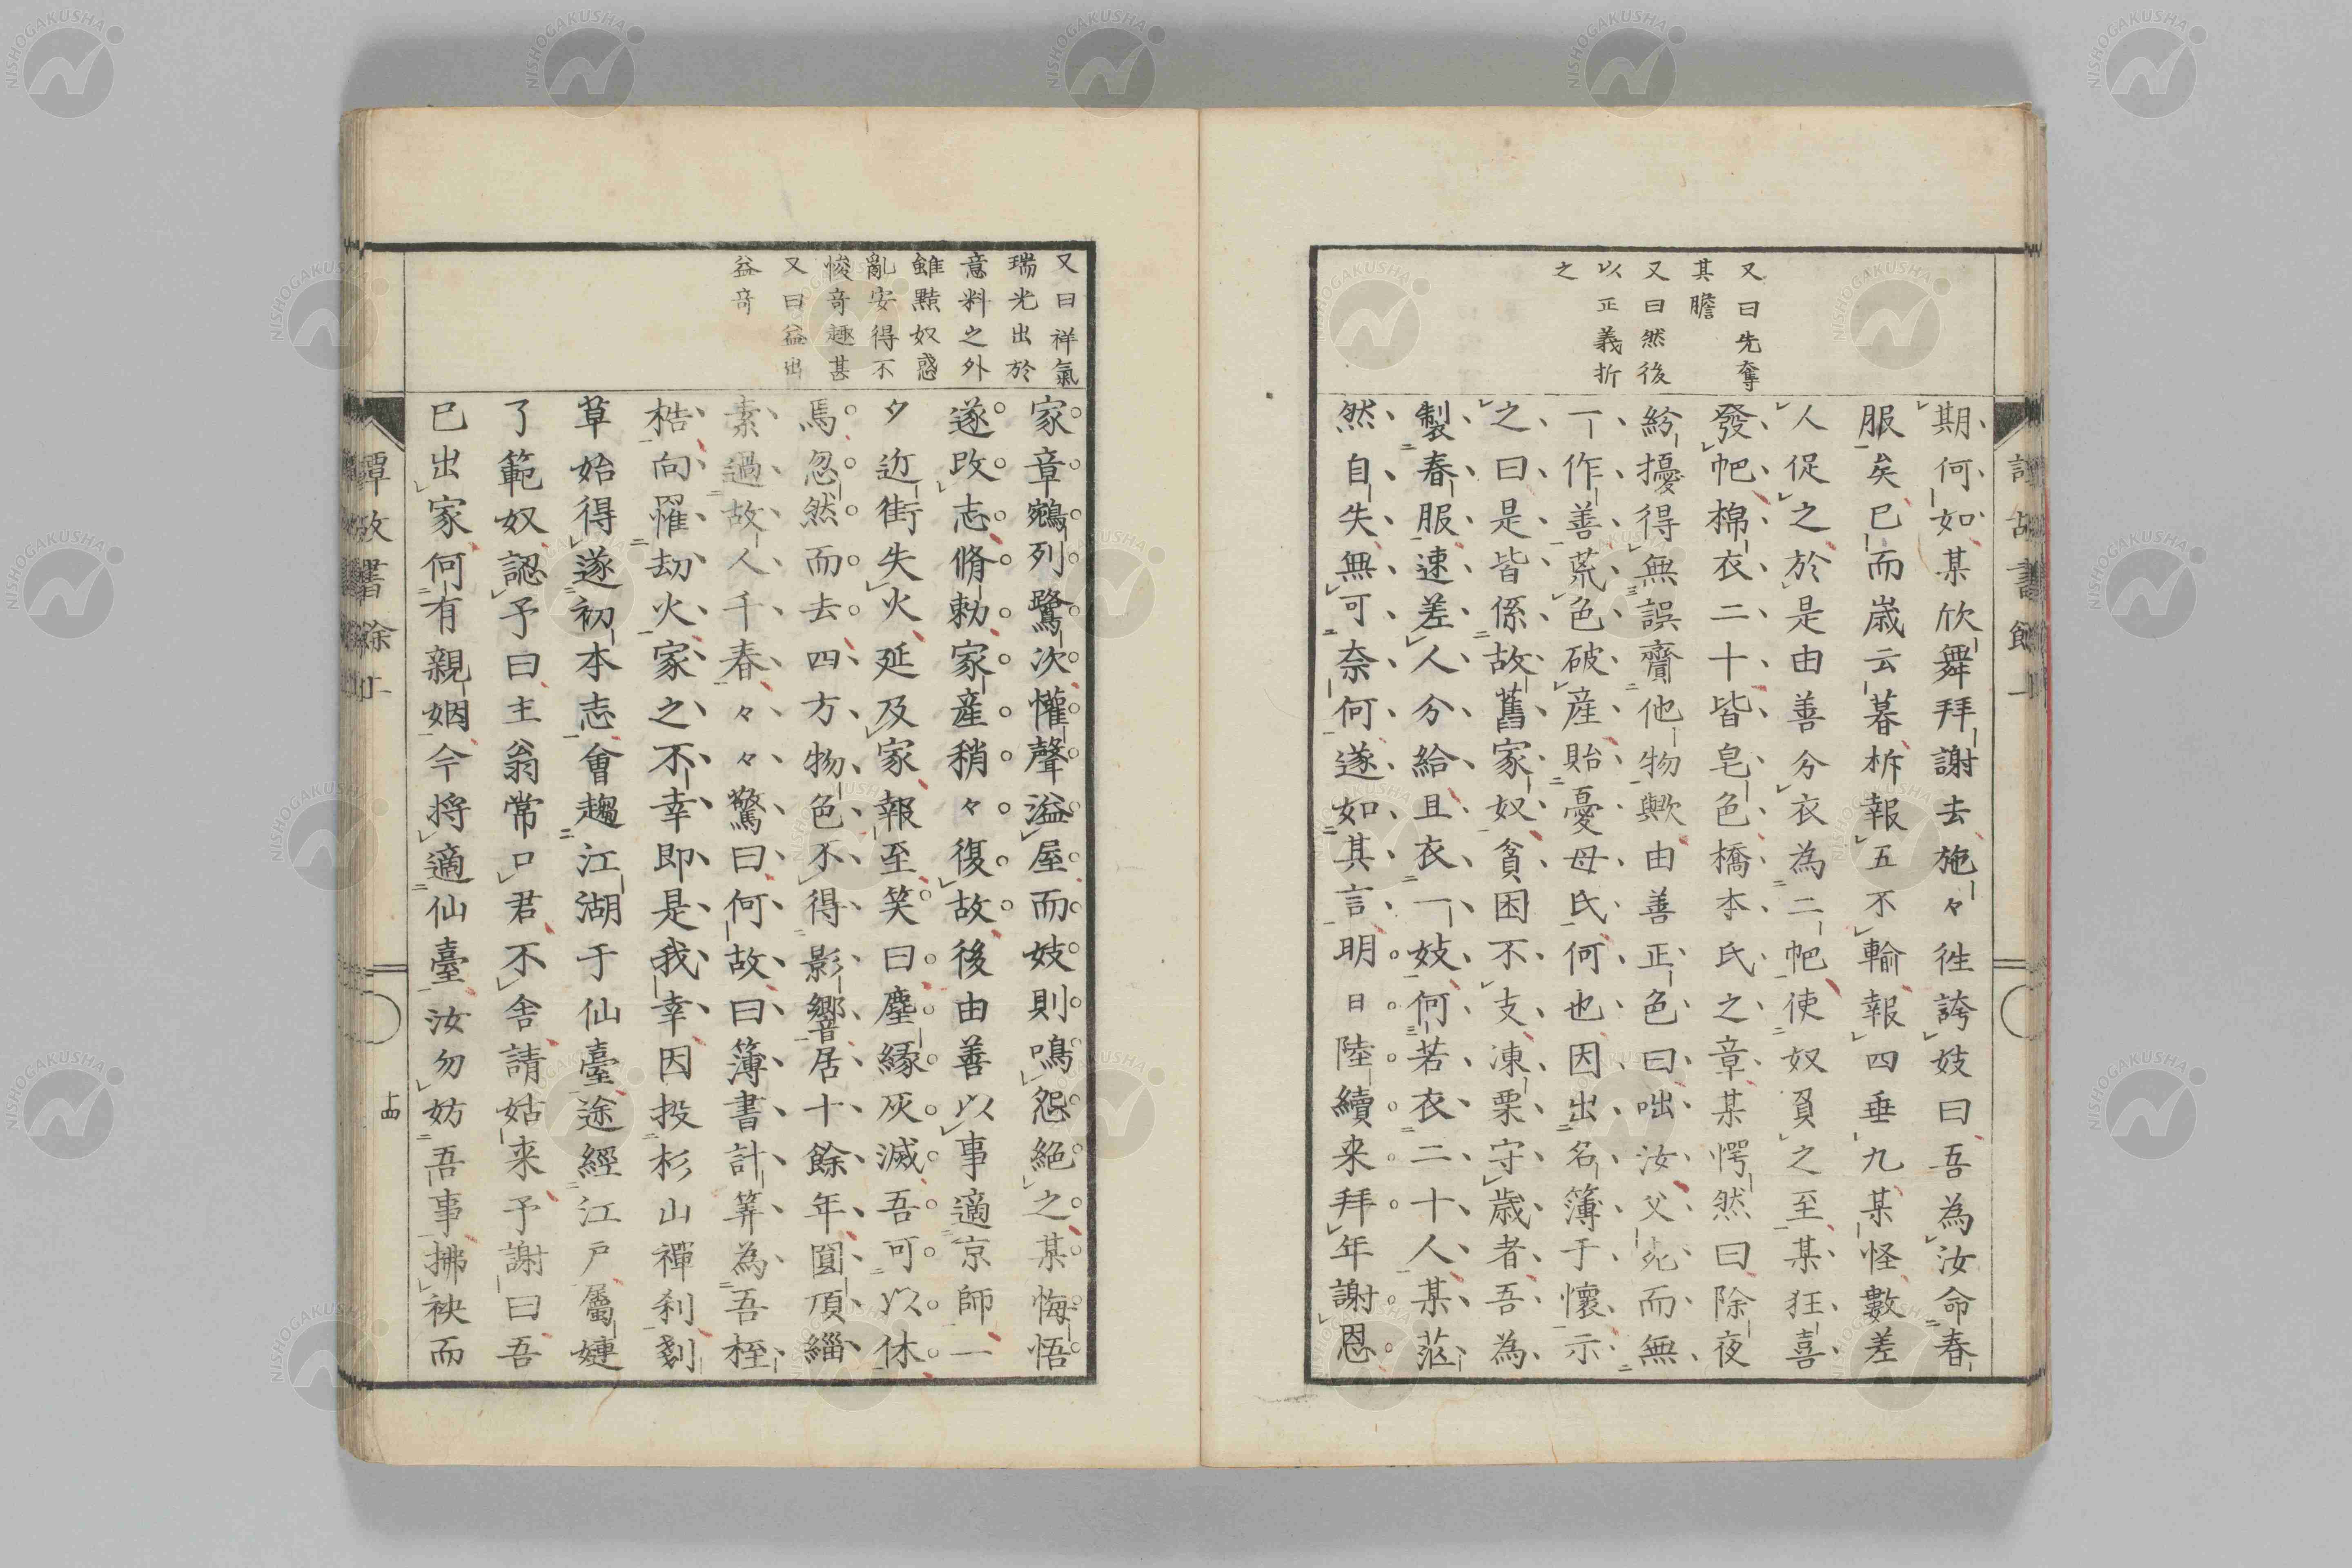 又曰先奪
其膽
又曰然後
以正義折
之
期何如某欣舞拜謝去施々徃誇妓曰吾為汝命春
服矣已而歳云暮柝報五不輸報四垂九某怪數差
人促之於是由善分衣為二帊使奴負之至某狂喜
發帊棉衣二十皆皂色橋本氏之章某愕然曰除夜
紛擾得無誤齎他物歟由善正色曰咄汝父死而無
一作善荒色破産貽憂母氏何也因出名簿于懷示
之曰是皆係故舊家奴貧困不支凍栗守歳者吾為
製春服速差人分給且衣一妓何若衣二十人某茫
然自失無可奈何遂如其言明日陸續来拜年謝恩
又曰祥氣
瑞光出於
意料之外
雖黠奴惑
亂安得不
悛奇趣甚
又曰益出
益奇
家章鵷列鷺次懽聲溢屋而妓則鳴怨絶之某悔悟
遂改志脩勅家産稍々復故後由善以事適京師一
夕近街失火延及家報至笑曰塵縁灰滅吾可以休
焉忽然而去四方物色不得影響居十餘年圓頂緇
素過故人千春々々驚曰何故曰簿書計筭為吾桎
梏向罹劫火家之不幸即是我幸因投杉山禪刹剗
草始得遂初本志會趨江湖于仙臺途經江戸屬嬢
了範奴認予曰主翁常口君不舎請姑来予謝曰吾
已出家何有親姻今将適仙臺汝勿妨吾事拂袂而
譚故書餘 上